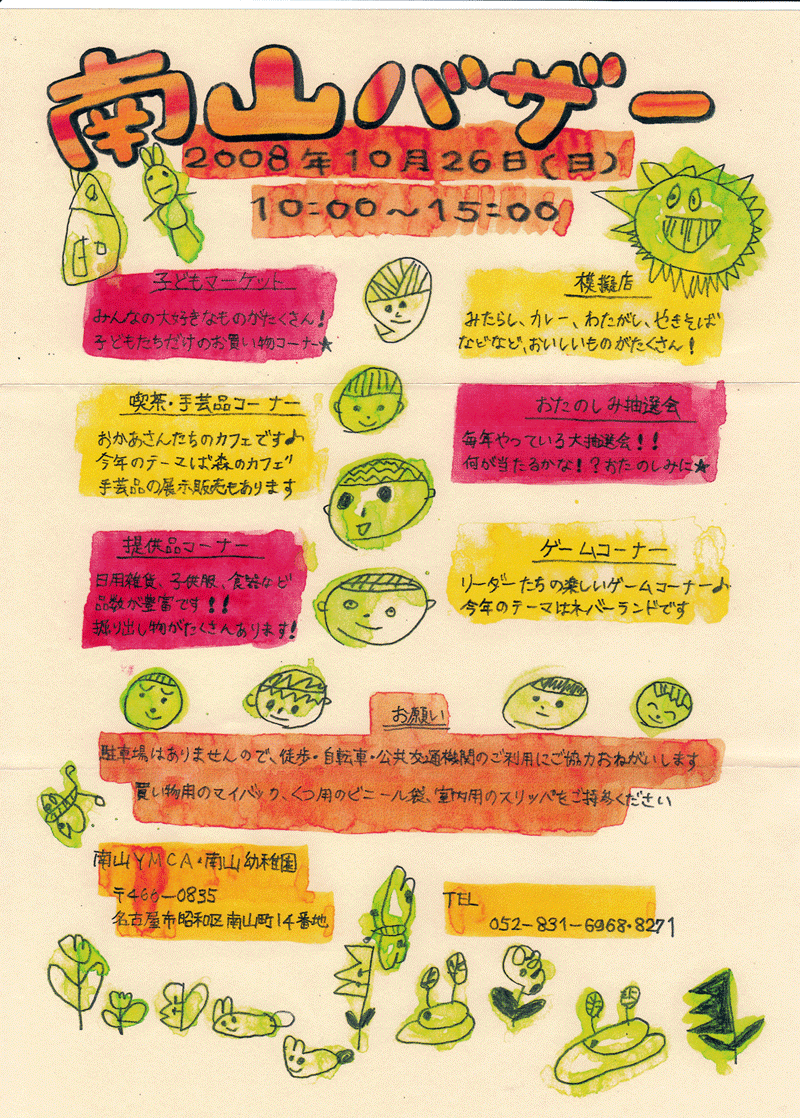 南山バザー
2008年10月26日(日)
10:00〜15:00
子どもマーケット
みんなの大好きなものがたくさん!
子どもたちだけのお買い物コーナー★
模擬店
みたらし、カレー、わたがし、やきそば
などなど、おいしいものがたくさん!
喫茶・手芸品コーナー
おかあさんたちのカフェです♪
今年のテーマは"森のカフェ"
手芸品の展示販売もあります
おたのしみ抽選会
毎年やっている大抽選会!!
何が当たるかな!?おたのしみに★
提供品コーナー
日用雑貨、子供服、食器など
品数が豊富です!!
掘り出し物がたくさんあります!
ゲームコーナー
リーダーたちの楽しいゲームコーナー♪
今年のテーマはネバーランドです
お願い
駐車場はありませんので、徒歩・自転車・公共交通機関のご利用にご協力おねがいします
買い物用のマイバック、くつ用のビニール袋、室内用のスリッパをご持参ください
南山YMCA・南山幼稚園
〒466-0835
名古屋市昭和区南山町14番地
TEL
052-831-6968・8271